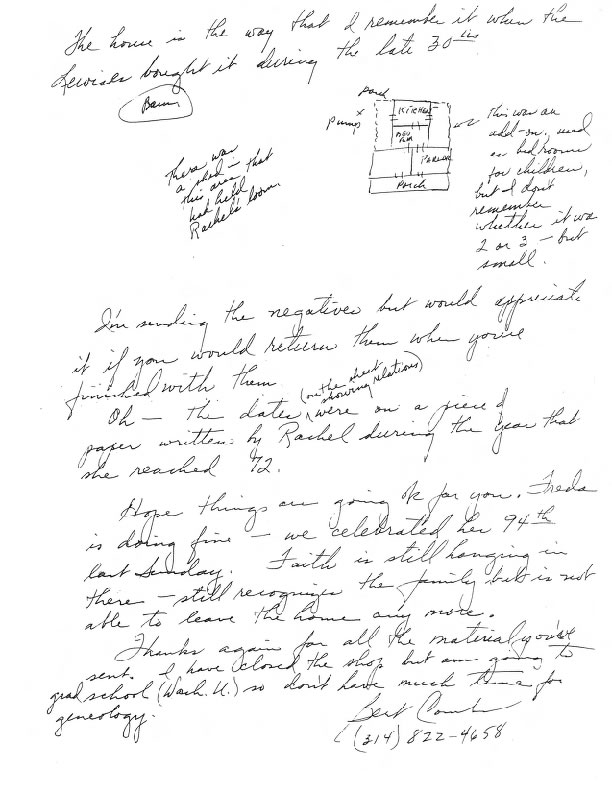 The house is the way that I remember it when the
Lewises bought it during the late 30ies
Barn
There was
a shed in
this area that
had held
Rachel's loom.
Porch
x
Pump
KITCHEN
DIN
RM
PARLOR
PORCH
this was an
add-on, used
as bedrooms
for children,
but I don't
remember
whether it was
2 or 3 - but
small.
I'm sending the negatives but would appreciate
it if you would return them when you're
finished with them.
(on the sheet
showing relations)
Oh - the dates were on a piece of
paper written by Rachel during the year that
she reached 72.
Hope things are going ok for you. Freda
is doing fine - we celebrated her 94th
last Sunday. Faith is still hanging in
there - still recognizes the family but is not
able to leave the home any more.
Thanks again for all the material you've
sent. I have closed the shop but am going to
grad school (Wash. U.) so don't have much time for
geneology.
Bert
(314) 822-4658